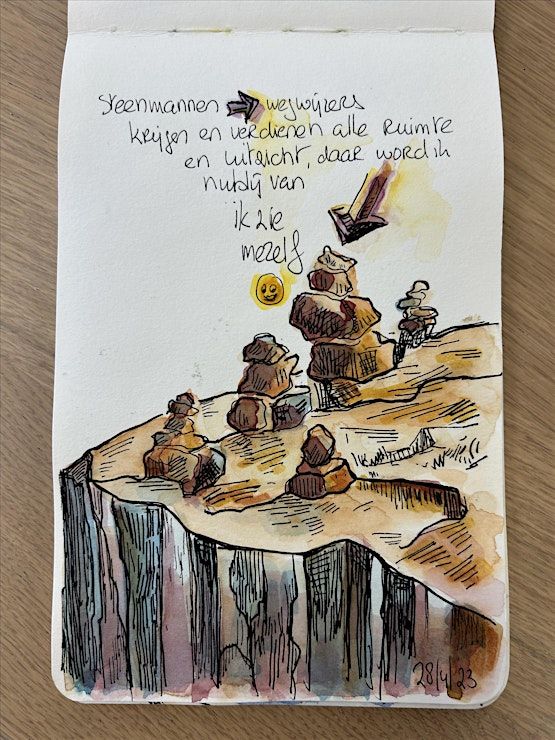 Steenmannen → wegwijzers
krijgen en verdienen alle ruimte
en uitzicht, daar word ik
nu blij van
ik zie
mezelf
28/4/23